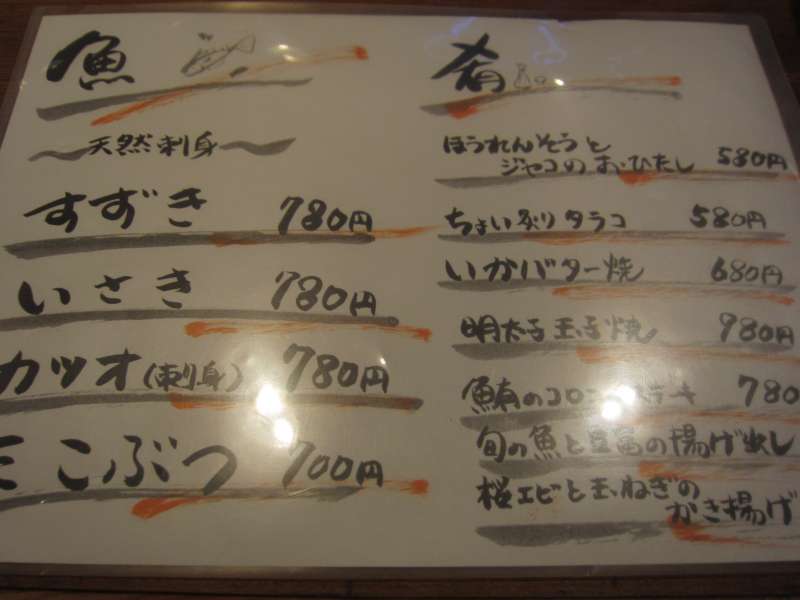 魚
～天然刺身～
すずき 780円
いさき 780円
カツオ(刺身) 780円
こぶつ 700円
肴
ほうれんそうと
ジャコのおひたし 580円
ちょい炙りタラコ 580円
いかバター焼 680円
明太子玉子焼 980円
鮪のコロ ステーキ 780
旬の魚と豆冨の揚げ出し
桜エビと玉ねぎの
かき揚げ